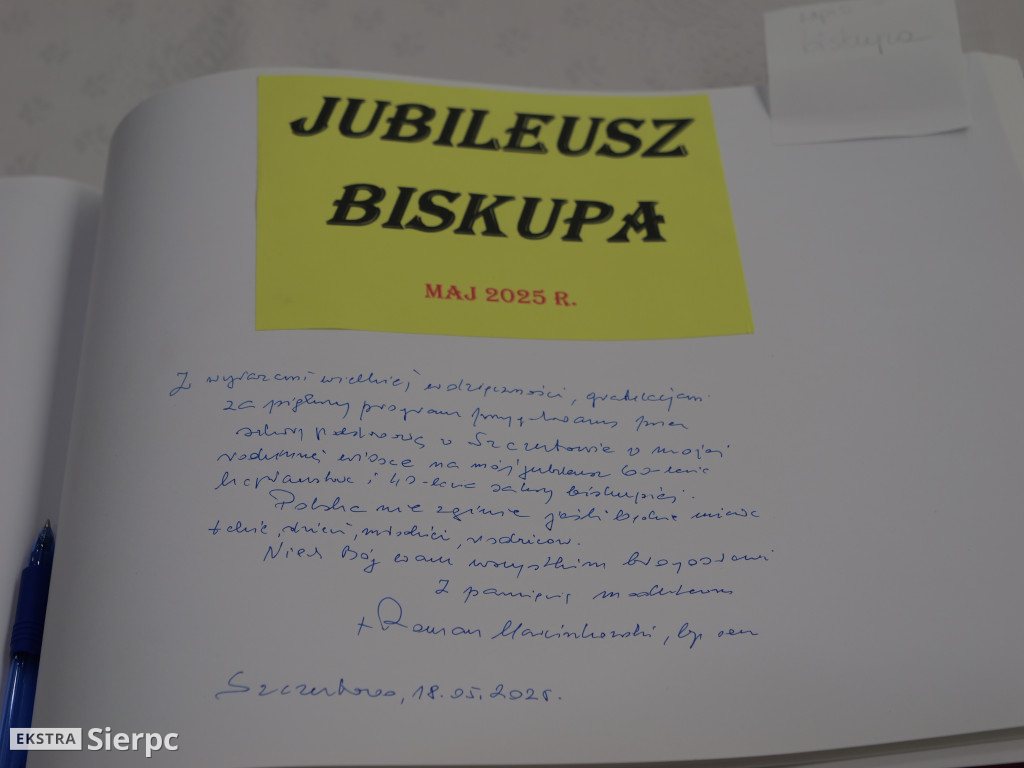 biskupa
JUBILEUSZ
BISKUPA
MAJ 2025 R.
Z wyrazami wielkiej wdzięczności, gratulacjami
za piękny program przygotowany przez
szkołę podstawową w Szczutowie w mojej
rodzinnej wiosce na mój jubileusz 60-lecia
kapłaństwa i 40-lecia sakry biskupiej.
Polska nie zginie jeśli będzie miała
takie dzieci, młodzież, rodziców.
Niech Bóg wam wszystkim błogosławi
Z pamięcią modlitewną
+ Roman Marcinkowski, bp sen
18.05.2025.
EKSTRA Sierpc